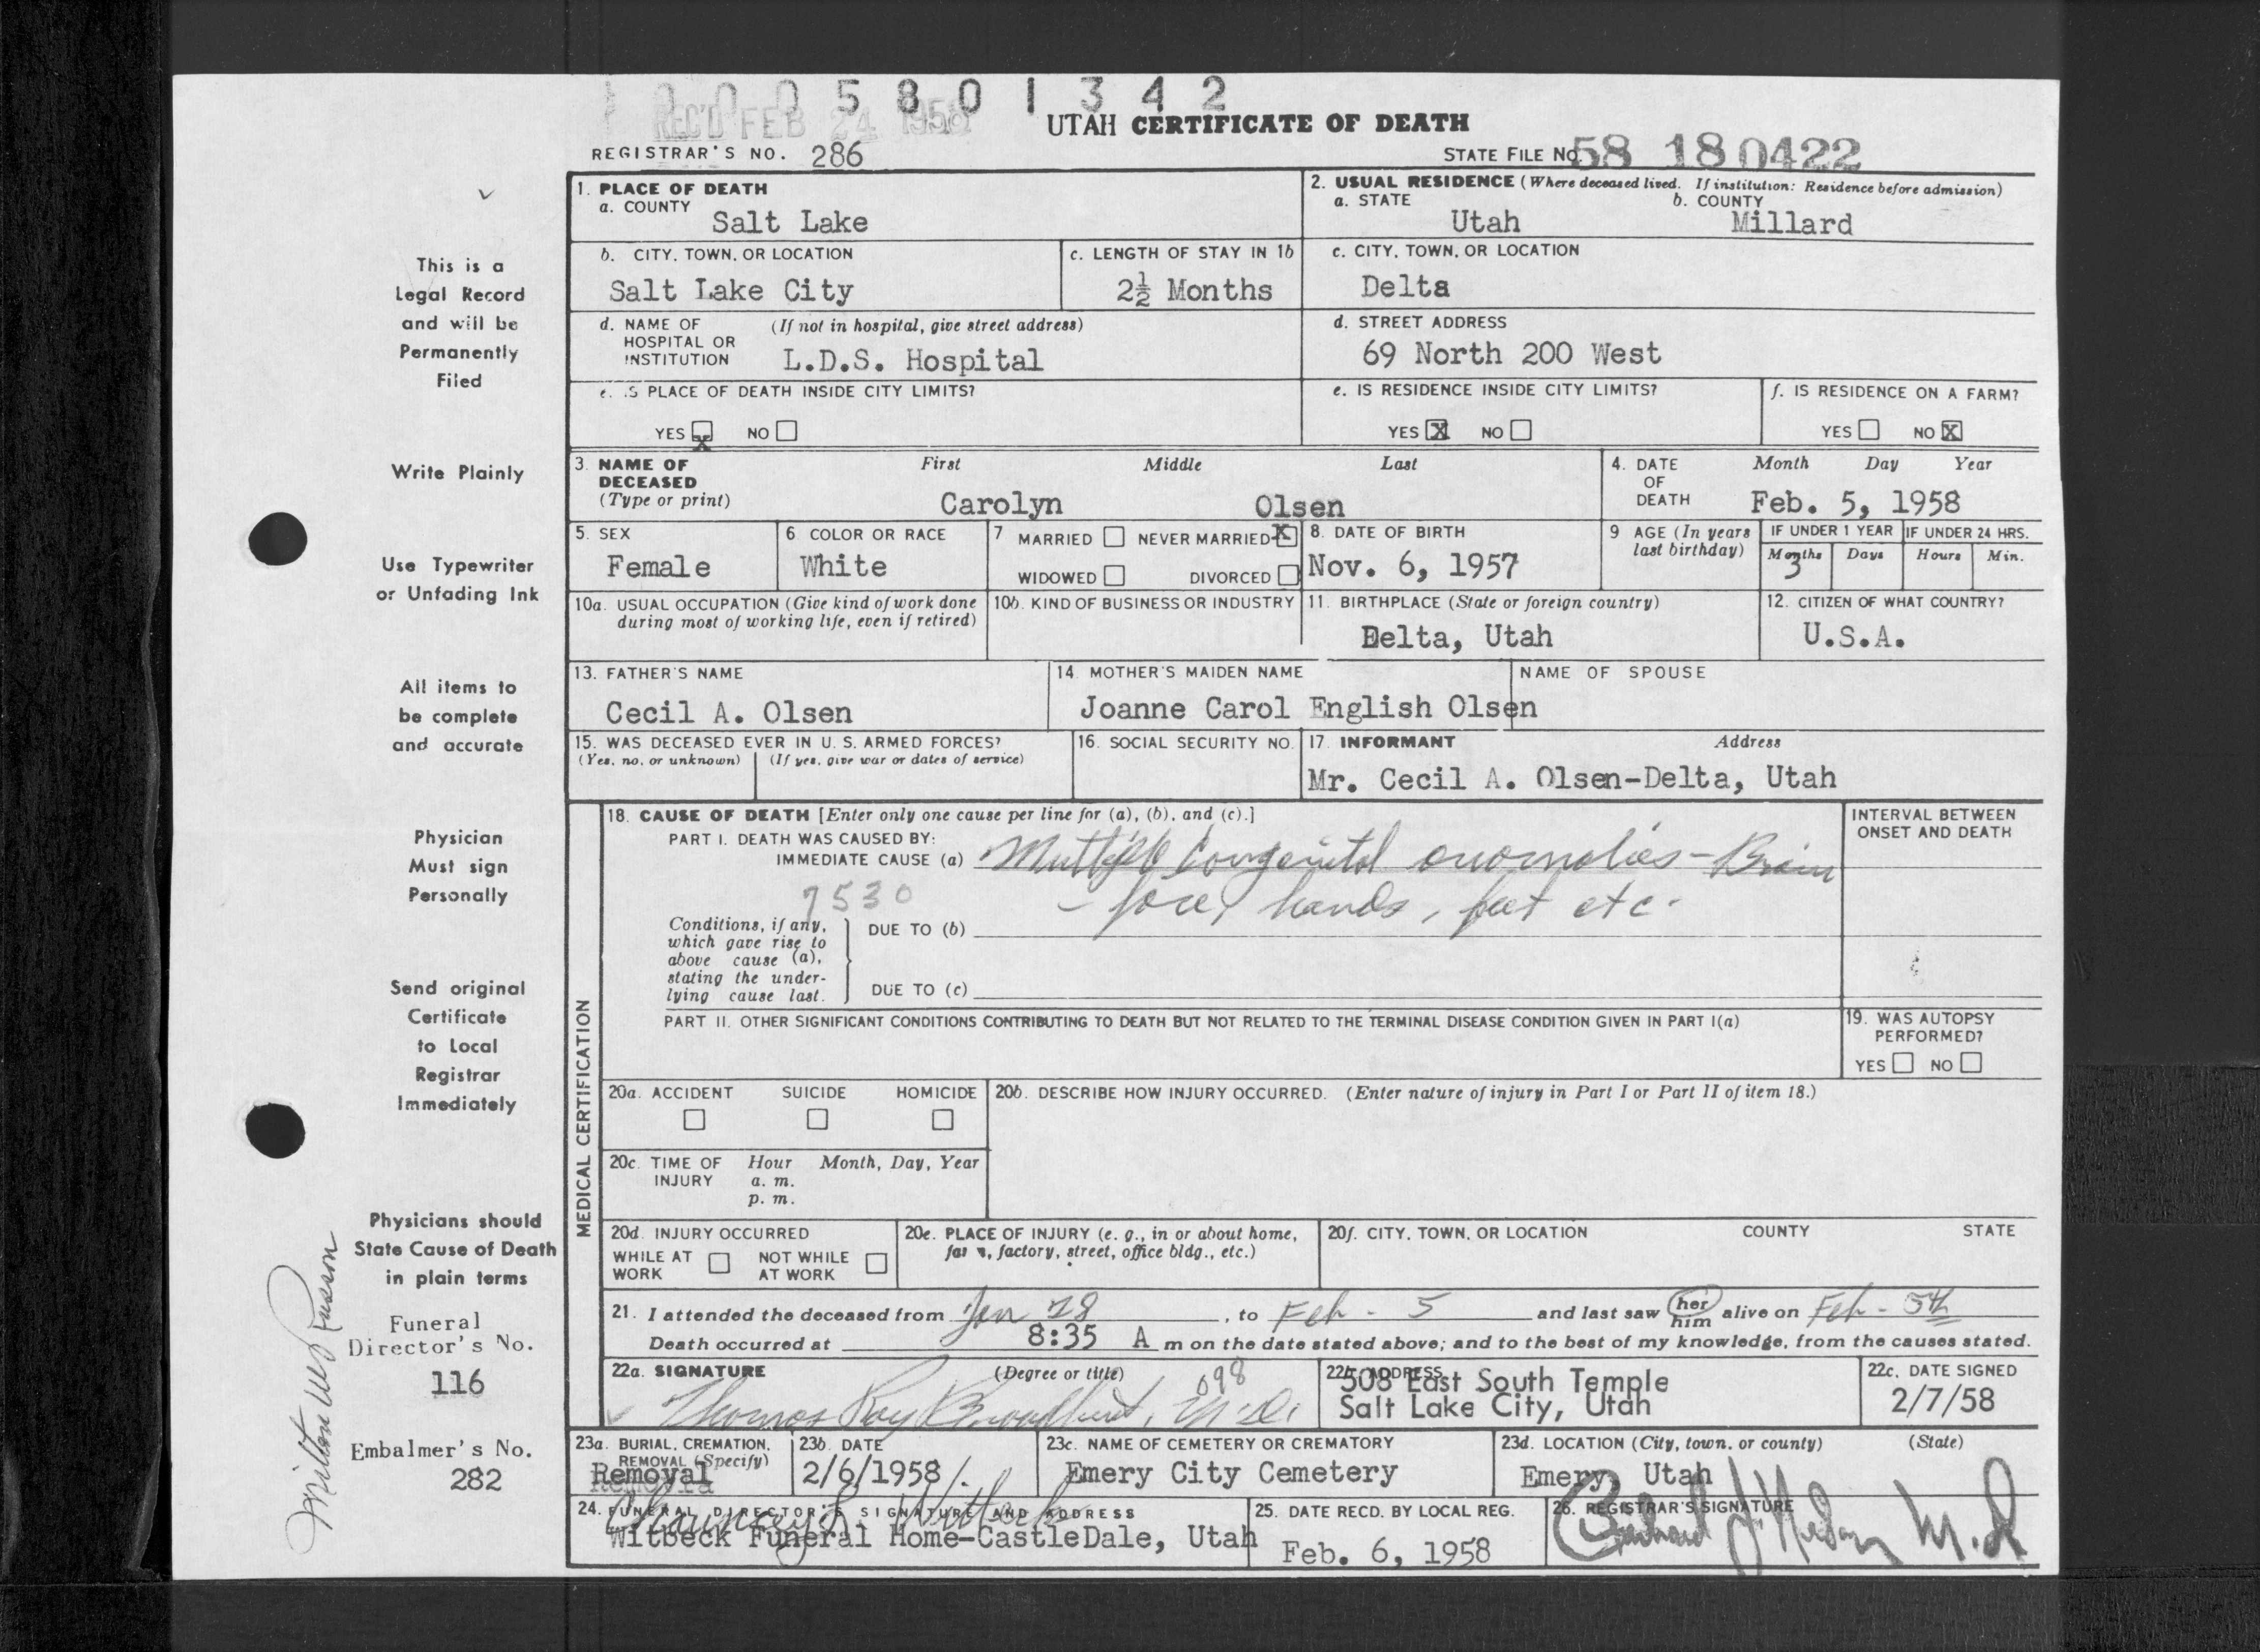 1005801342
REC'D FEB 24 1958
UTAH CERTIFICATE OF DEATH
REGISTRAR'S NO. 286
STATE FILE NO. 58 18 0422
1. PLACE OF DEATH
a. COUNTY
Salt Lake
2. USUAL RESIDENCE (Where deceased lived. If institution: Residence before admission)
a. STATE b. COUNTY
Utah Millard
b. CITY, TOWN, OR LOCATION
Salt Lake City
c. LENGTH OF STAY IN 1b
2½ Months
c. CITY, TOWN, OR LOCATION
Delta
d. NAME OF HOSPITAL OR INSTITUTION (If not in hospital, give street address)
L.D.S. Hospital
d. STREET ADDRESS
69 North 200 West
e. IS PLACE OF DEATH INSIDE CITY LIMITS?
YES X NO
e. IS RESIDENCE INSIDE CITY LIMITS?
YES X NO
f. IS RESIDENCE ON A FARM?
YES NO X
3. NAME OF DECEASED (Type or print)
First Middle Last
Carolyn Olsen
4. DATE OF DEATH
Month Day Year
Feb. 5, 1958
5. SEX
Female
6 COLOR OR RACE
White
7 MARRIED NEVER MARRIED X
WIDOWED DIVORCED
8. DATE OF BIRTH
Nov. 6, 1957
9 AGE (In years last birthday)
IF UNDER 1 YEAR IF UNDER 24 HRS.
Months Days Hours Min.
3
10a. USUAL OCCUPATION (Give kind of work done during most of working life, even if retired)
10b. KIND OF BUSINESS OR INDUSTRY
11. BIRTHPLACE (State or foreign country)
Delta, Utah
12. CITIZEN OF WHAT COUNTRY?
U.S.A.
13. FATHER'S NAME
Cecil A. Olsen
14. MOTHER'S MAIDEN NAME
Joanne Carol English Olsen
NAME OF SPOUSE
15. WAS DECEASED EVER IN U. S. ARMED FORCES?
(Yes, no, or unknown) (If yes, give war or dates of service)
16. SOCIAL SECURITY NO.
17. INFORMANT Address
Mr. Cecil A. Olsen-Delta, Utah
MEDICAL CERTIFICATION
18. CAUSE OF DEATH [Enter only one cause per line for (a), (b), and (c).]
INTERVAL BETWEEN ONSET AND DEATH
PART I. DEATH WAS CAUSED BY:
IMMEDIATE CAUSE (a) Multiple Congenital anomalies - Brain
7530 - face, hands, feet etc.
Conditions, if any, which gave rise to above cause (a), stating the underlying cause last.
DUE TO (b)
DUE TO (c)
PART II. OTHER SIGNIFICANT CONDITIONS CONTRIBUTING TO DEATH BUT NOT RELATED TO THE TERMINAL DISEASE CONDITION GIVEN IN PART I(a)
19. WAS AUTOPSY PERFORMED?
YES NO
20a. ACCIDENT SUICIDE HOMICIDE
20b. DESCRIBE HOW INJURY OCCURRED. (Enter nature of injury in Part I or Part II of item 18.)
20c. TIME OF INJURY Hour Month, Day, Year
a. m.
p. m.
20d. INJURY OCCURRED
WHILE AT WORK NOT WHILE AT WORK
20e. PLACE OF INJURY (e. g., in or about home, farm, factory, street, office bldg., etc.)
20f. CITY, TOWN, OR LOCATION COUNTY STATE
21. I attended the deceased from Jan 28, to Feb - 5 and last saw her him alive on Feb - 5th
Death occurred at 8:35 A m on the date stated above; and to the best of my knowledge, from the causes stated.
22a. SIGNATURE (Degree or title)
098
Thomas Ray Broadbent, M.D.
22b. ADDRESS
508 East South Temple
Salt Lake City, Utah
22c. DATE SIGNED
2/7/58
23a. BURIAL, CREMATION, REMOVAL (Specify)
Removal
23b. DATE
2/6/1958
23c. NAME OF CEMETERY OR CREMATORY
Emery City Cemetery
23d. LOCATION (City, town, or county) (State)
Emery, Utah
24. FUNERAL DIRECTOR'S SIGNATURE AND ADDRESS
Witbeck Funeral Home-CastleDale, Utah
25. DATE RECD. BY LOCAL REG.
Feb. 6, 1958
26. REGISTRAR'S SIGNATURE
M.D.
This is a
Legal Record
and will be
Permanently
Filed
Write Plainly
Use Typewriter
or Unfading Ink
All items to
be complete
and accurate
Physician
Must sign
Personally
Send original
Certificate
to Local
Registrar
Immediately
Physicians should
State Cause of Death
in plain terms
Funeral
Director's No.
116
Embalmer's No.
282